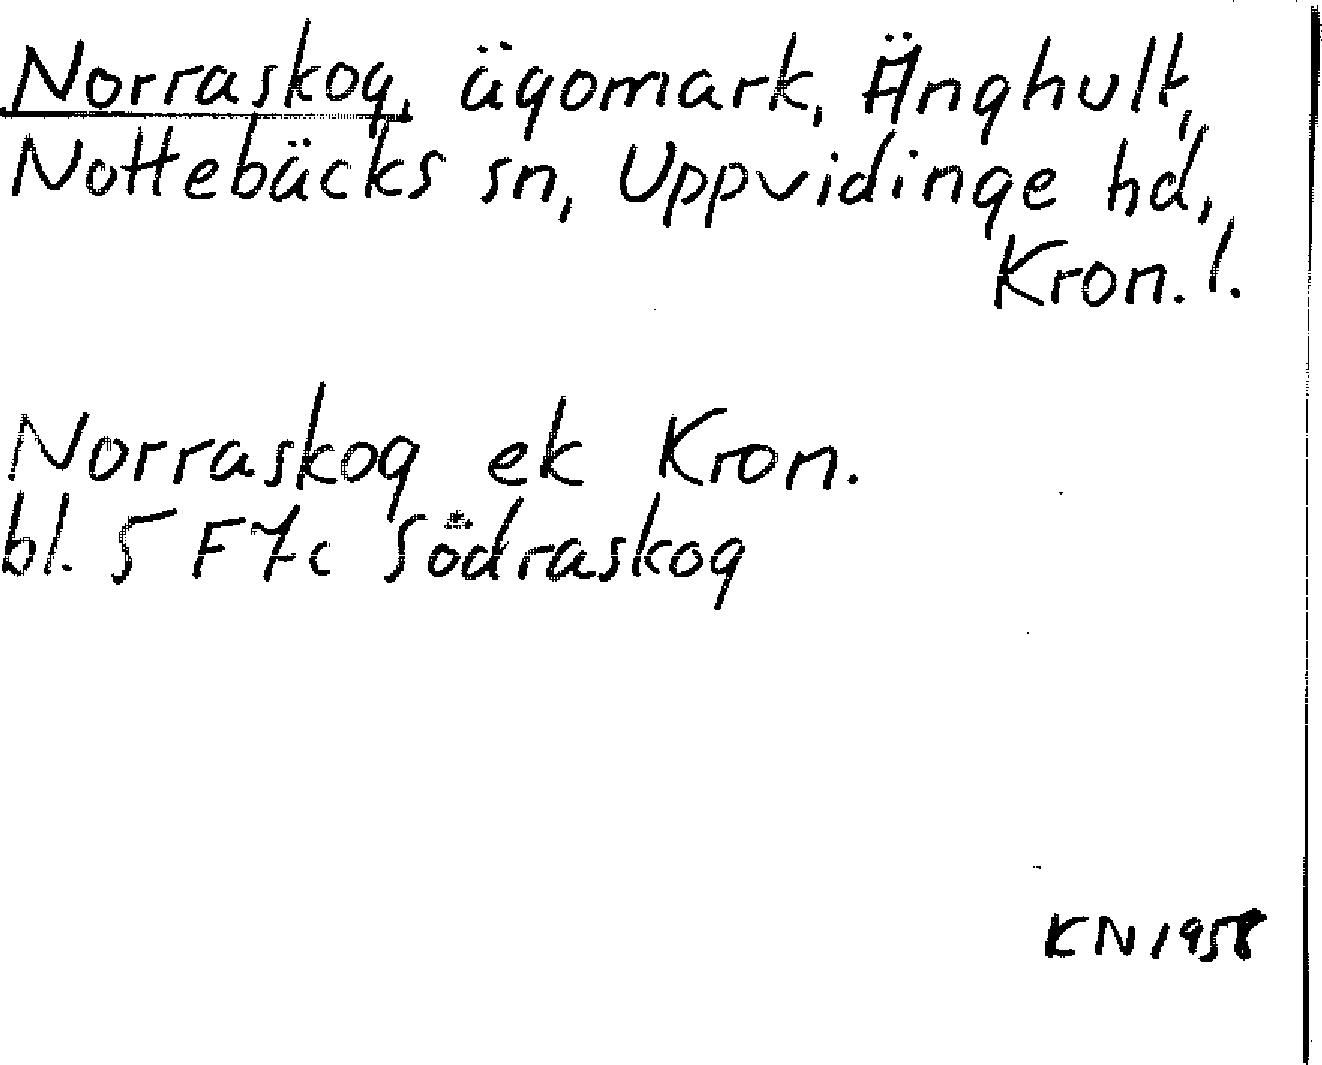 Norraskog, ägomark, Änghult,
Nottebäcks sn, Uppvidinge hd,
Kron. l.
Norraskog ek Kron.
bl. 5 F 7c Södraskog
KN 1958